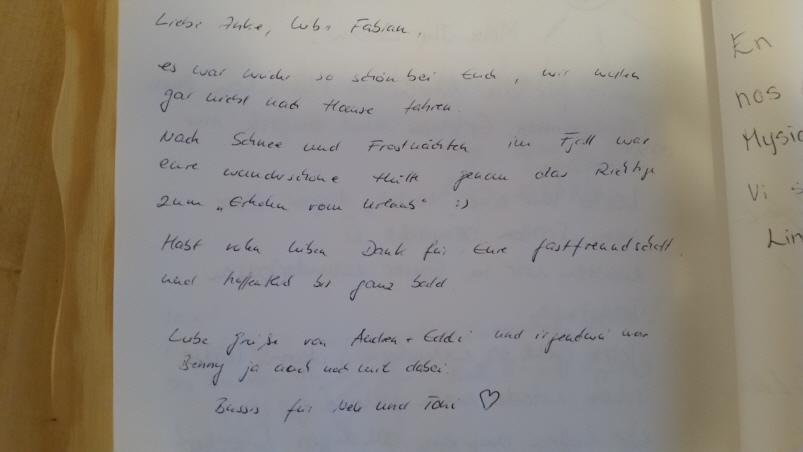 Liebe Anke, liebe Fabian,
es war wieder so schön bei Euch, wir wollen
gar nicht nach Hause fahren.
Nach Schnee und Frostnächten im Fjell war
eure wunderschöne Hütte genau das Richtige
zum „Erholen vom Urlaub" :)
Habt vielen lieben Dank für Eure Gastfreundschaft
und hoffentlich bis ganz bald.
Liebe Grüße von Andrea + Eddi und irgendwie war
Benny ja auch noch mit dabei.
Bussis für Nele und Toni ♡
En
nos
Mysig
Vi
Lin